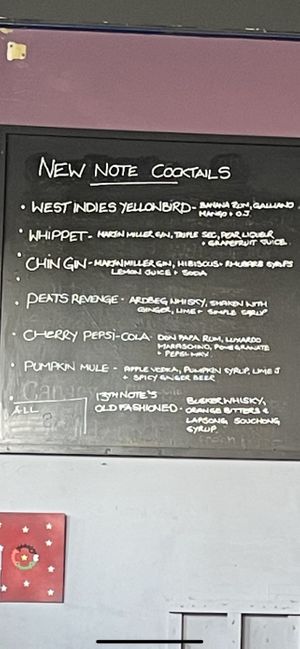 NEW NOTE COCKTAILS
• WEST INDIES YELLOWBIRD - BANANA RUM, GALLIANO
MANGO + O.J.
• WHIPPET - MARTIN MILLER GIN, TRIPLE SEC, PEAR LIQUEUR
+ GRAPEFRUIT JUICE.
• CHIN GIN - MARTIN MILLER GIN, HIBISCUS + RHUBARB SYRUPS
LEMON JUICE + SODA
• PEATS REVENGE - ARDBEG WHISKY, SHAKEN WITH
GINGER, LIME + SIMPLE SYRUP
• CHERRY PEPSI-COLA - DON PAPA RUM, LUXARDO
MARASCHINO, POMEGRANATE
+ PEPSI MAX.
• PUMPKIN MULE - APPLE VODKA, PUMPKIN SYRUP, LIME J
+ SPICY GINGER BEER
• 13TH NOTE'S
OLD FASHIONED - BUSKER WHISKY,
ORANGE BITTERS &
LAPSONG SOUCHONG
SYRUP.
ALL